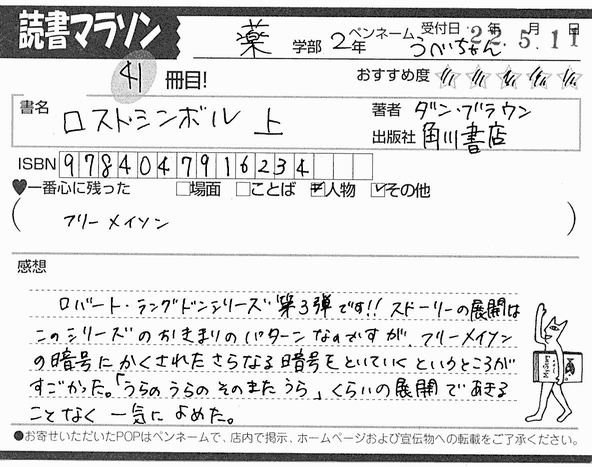 読書マラソン
薬 学部 2年 ペンネーム うべちゃん 受付日 22年 5月 11日
41 冊目!
おすすめ度
書名 ロストシンボル 上
著者 ダン・ブラウン
出版社 角川書店
ISBN 9784047916234
♥一番心に残った □場面 □ことば ☑人物 ☑その他
( フリーメイソン )
感想
ロバート・ラングドンシリーズ第3弾です!! ストーリーの展開は
このシリーズのおきまりのパターンなのですが、フリーメイソン
の暗号にかくされたさらなる暗号をといていくというところが
すごかった。「うらのうらのそのまたうら」くらいの展開であきる
ことなく一気によめた。
●お寄せいただいたPOPはペンネームで、店内で掲示、ホームページおよび宣伝物への転載をご了承ください。